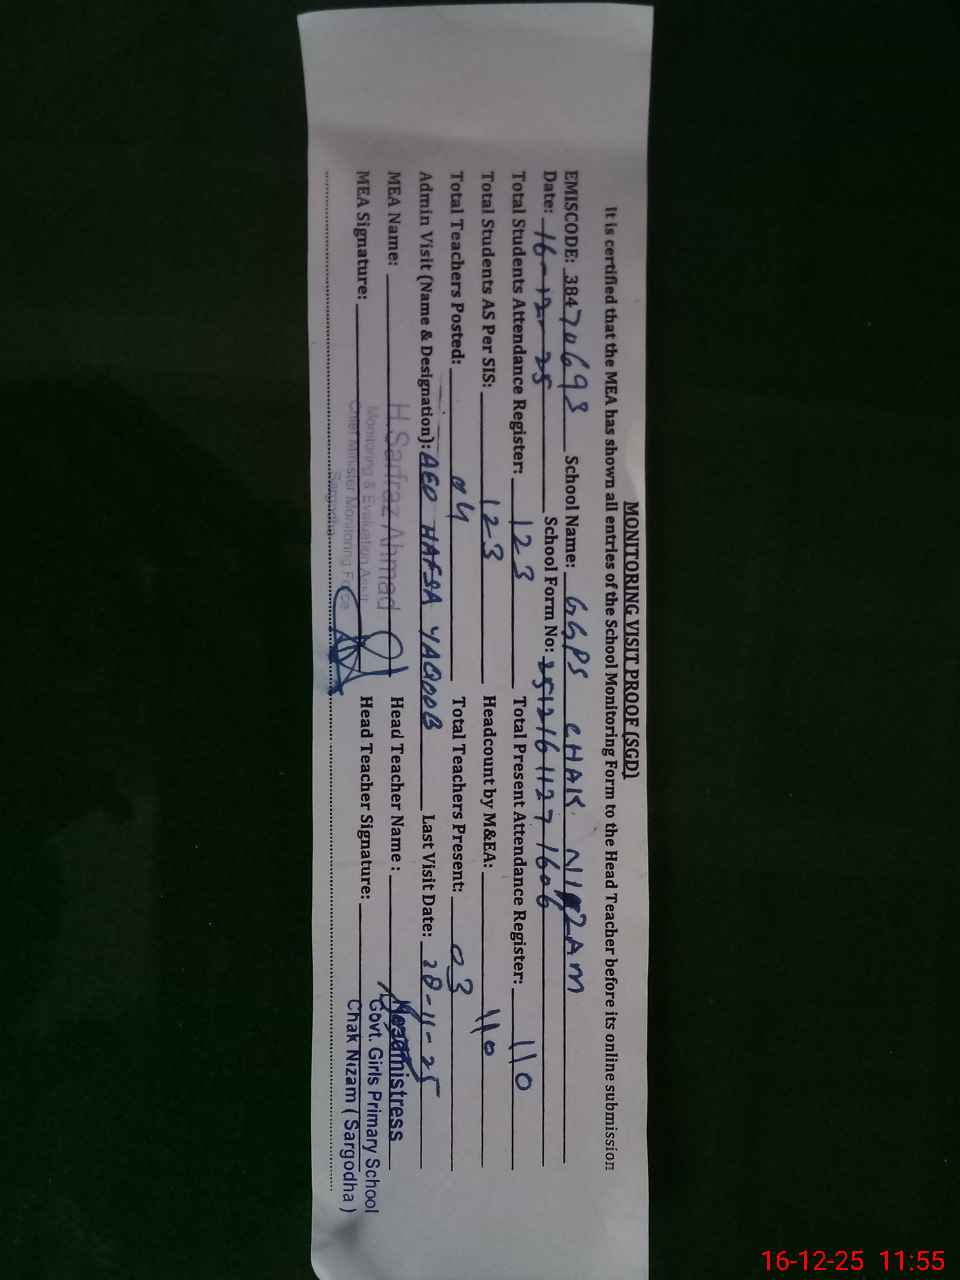 MONITORING VISIT PROOF (SGD)
It is certified that the MEA has shown all entries of the School Monitoring Form to the Head Teacher before its online submission
EMISCODE: 38470693 School Name: GGPS CHAK NIZAM
Date: 16-12-25 School Form No: 25121611271606
Total Students Attendance Register: 123 Total Present Attendance Register: 110
Total Students AS Per SIS: 123 Headcount by M&EA: 110
Total Teachers Posted: 04 Total Teachers Present: 03
Admin Visit (Name & Designation): AEO HAFSA YAQOOB Last Visit Date: 28-11-25
MEA Name: H.Sarfraz Ahmad Head Teacher Name :
Monitoring & Evaluation Asstt
MEA Signature: Chief Minister Monitoring Force Head Teacher Signature:
Sargodha
Headmistress
Govt. Girls Primary School
Chak Nizam ( Sargodha )
16-12-25 11:55